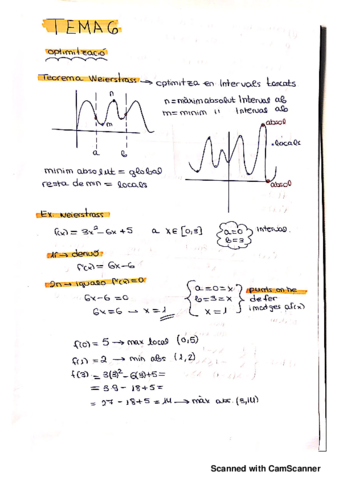 TEMA 6
optimització
Teorema Weierstrass → optimitza en intervals tancats
n = màxim absolut Interval ab
m = minim " Interval ab
n
m
a
b
absol
locals
absol
minim absolut = global
resta de min = locals
Ex. Weierstrass
f(x) = 3x² - 6x + 5 a x∈[0,3]
a=0
b=3
Interval.
1r → derivo
f'(x) = 6x - 6
2n → igualo f'(x)=0
6x - 6 = 0
6x = 6 → x = 1
a = 0 = x
b = 3 = x
x = 1
punts on he
de fer
imatges a f(x)
f(0) = 5 → max local (0,5)
f(1) = 2 → min abs (1,2)
f(3) = 3(3)² - 6(3) + 5 =
= 3·9 - 18 + 5 =
= 27 - 18 + 5 = 14 → màx abs. (3,14)
Scanned with CamScanner